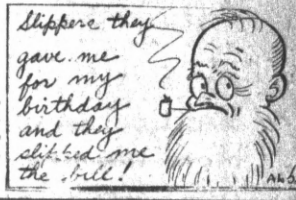 Slippers they
gave me
for my
birthday
and they
slipped me
the bill!